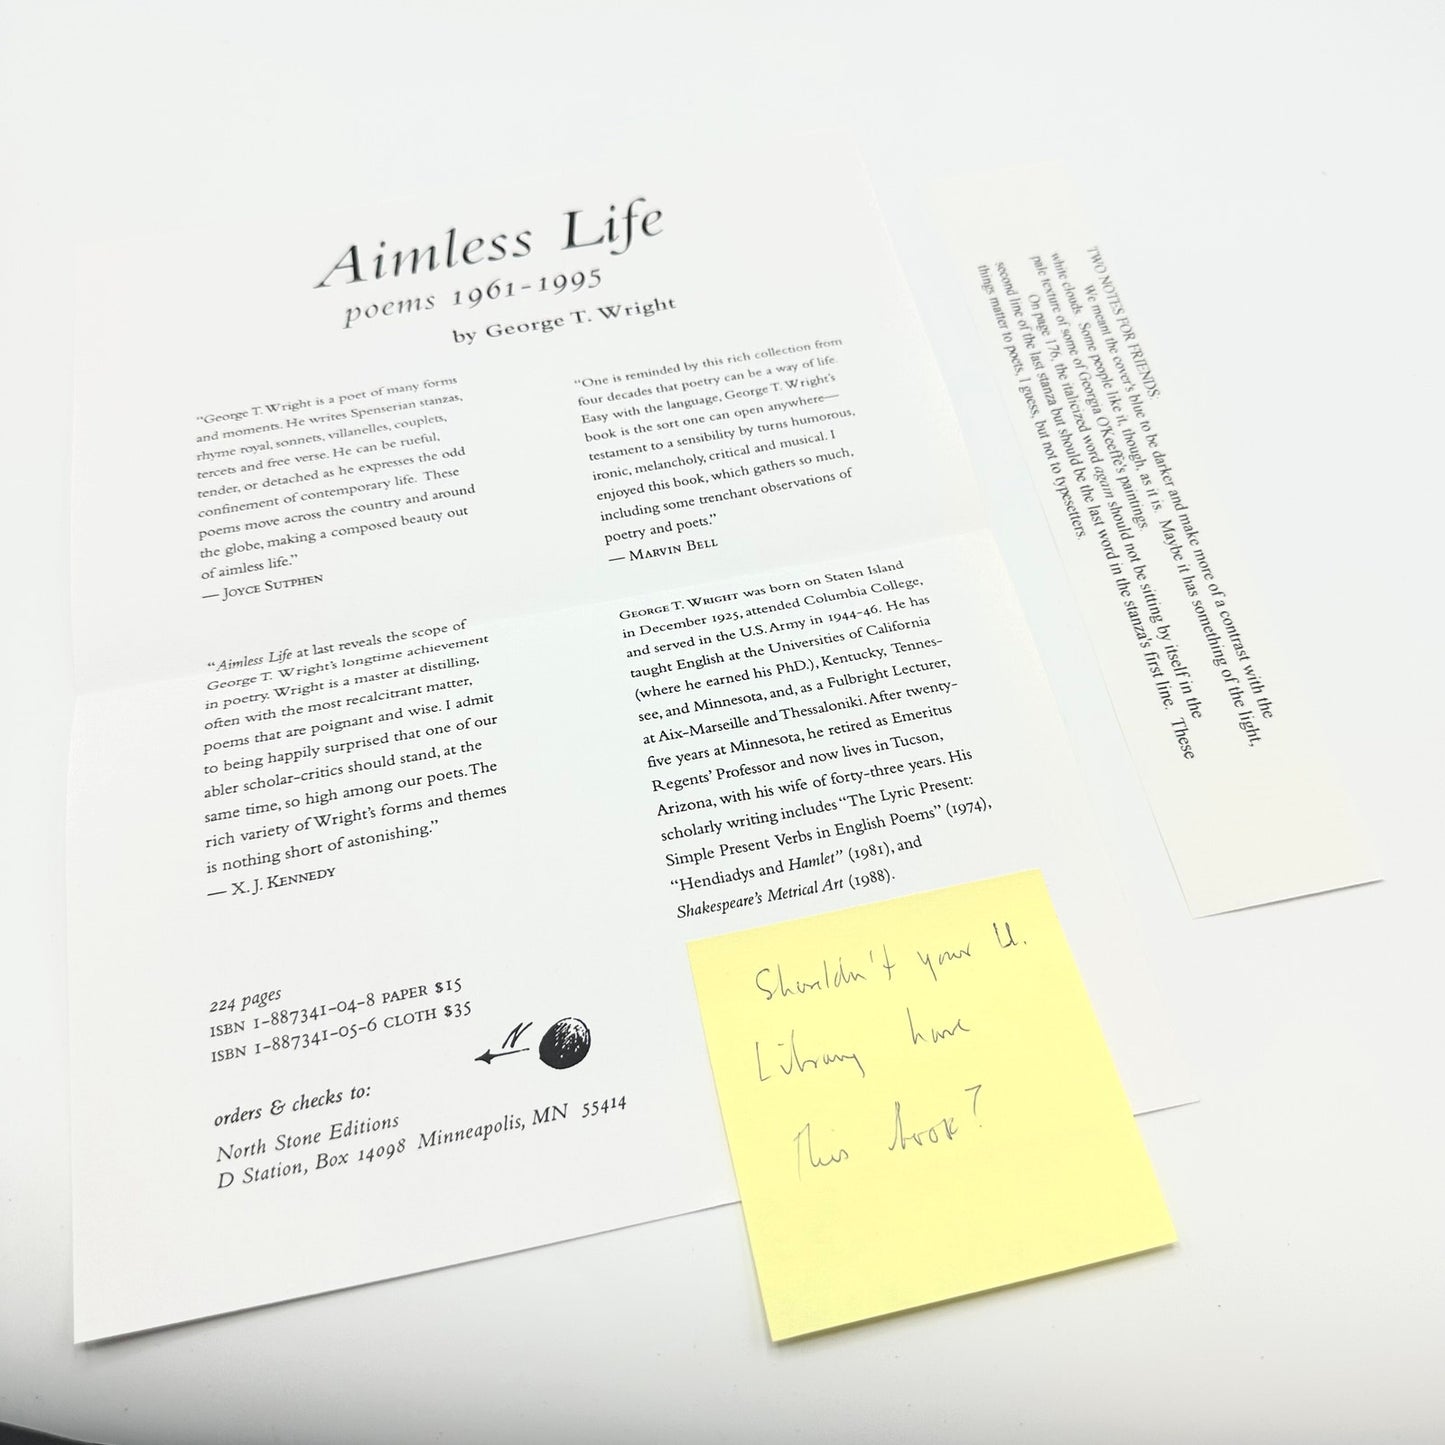 Aimless Life
poems 1961-1995
by George T. Wright
“George T. Wright is a poet of many forms
and moments. He writes Spenserian stanzas,
rhyme royal, sonnets, villanelles, couplets,
tercets and free verse. He can be rueful,
tender, or detached as he expresses the odd
confinement of contemporary life. These
poems move across the country and around
the globe, making a composed beauty out
of aimless life.”
— Joyce Sutphen
“Aimless Life at last reveals the scope of
George T. Wright's longtime achievement
in poetry. Wright is a master at distilling,
often with the most recalcitrant matter,
poems that are poignant and wise. I admit
to being happily surprised that one of our
abler scholar-critics should stand, at the
same time, so high among our poets. The
rich variety of Wright's forms and themes
is nothing short of astonishing.”
— X. J. Kennedy
“One is reminded by this rich collection from
four decades that poetry can be a way of life.
Easy with the language, George T. Wright's
book is the sort one can open anywhere—
testament to a sensibility by turns humorous,
ironic, melancholy, critical and musical. I
enjoyed this book, which gathers so much,
including some trenchant observations of
poetry and poets.”
— Marvin Bell
George T. Wright was born on Staten Island
in December 1925, attended Columbia College,
and served in the U.S. Army in 1944-46. He has
taught English at the Universities of California
(where he earned his PhD.), Kentucky, Tennes-
see, and Minnesota, and, as a Fulbright Lecturer,
at Aix-Marseille and Thessaloniki. After twenty-
five years at Minnesota, he retired as Emeritus
Regents' Professor and now lives in Tucson,
Arizona, with his wife of forty-three years. His
scholarly writing includes “The Lyric Present:
Simple Present Verbs in English Poems” (1974),
“Hendiadys and Hamlet” (1981), and
Shakespeare's Metrical Art (1988).
224 pages
ISBN 1-887341-04-8 PAPER $15
ISBN 1-887341-05-6 CLOTH $35
N
orders & checks to:
North Stone Editions
D Station, Box 14098 Minneapolis, MN 55414
TWO NOTES FOR FRIENDS:
We meant the cover's blue to be darker and make more of a contrast with the
white clouds. Some people like it, though, as it is. Maybe it has something of the light,
pale texture of some of Georgia O'Keeffe's paintings.
On page 176, the italicized word again should not be sitting by itself in the
second line of the last stanza but should be the last word in the stanza's first line. These
things matter to poets, I guess, but not to typesetters.
Shouldn't your U.
Library have
this book?